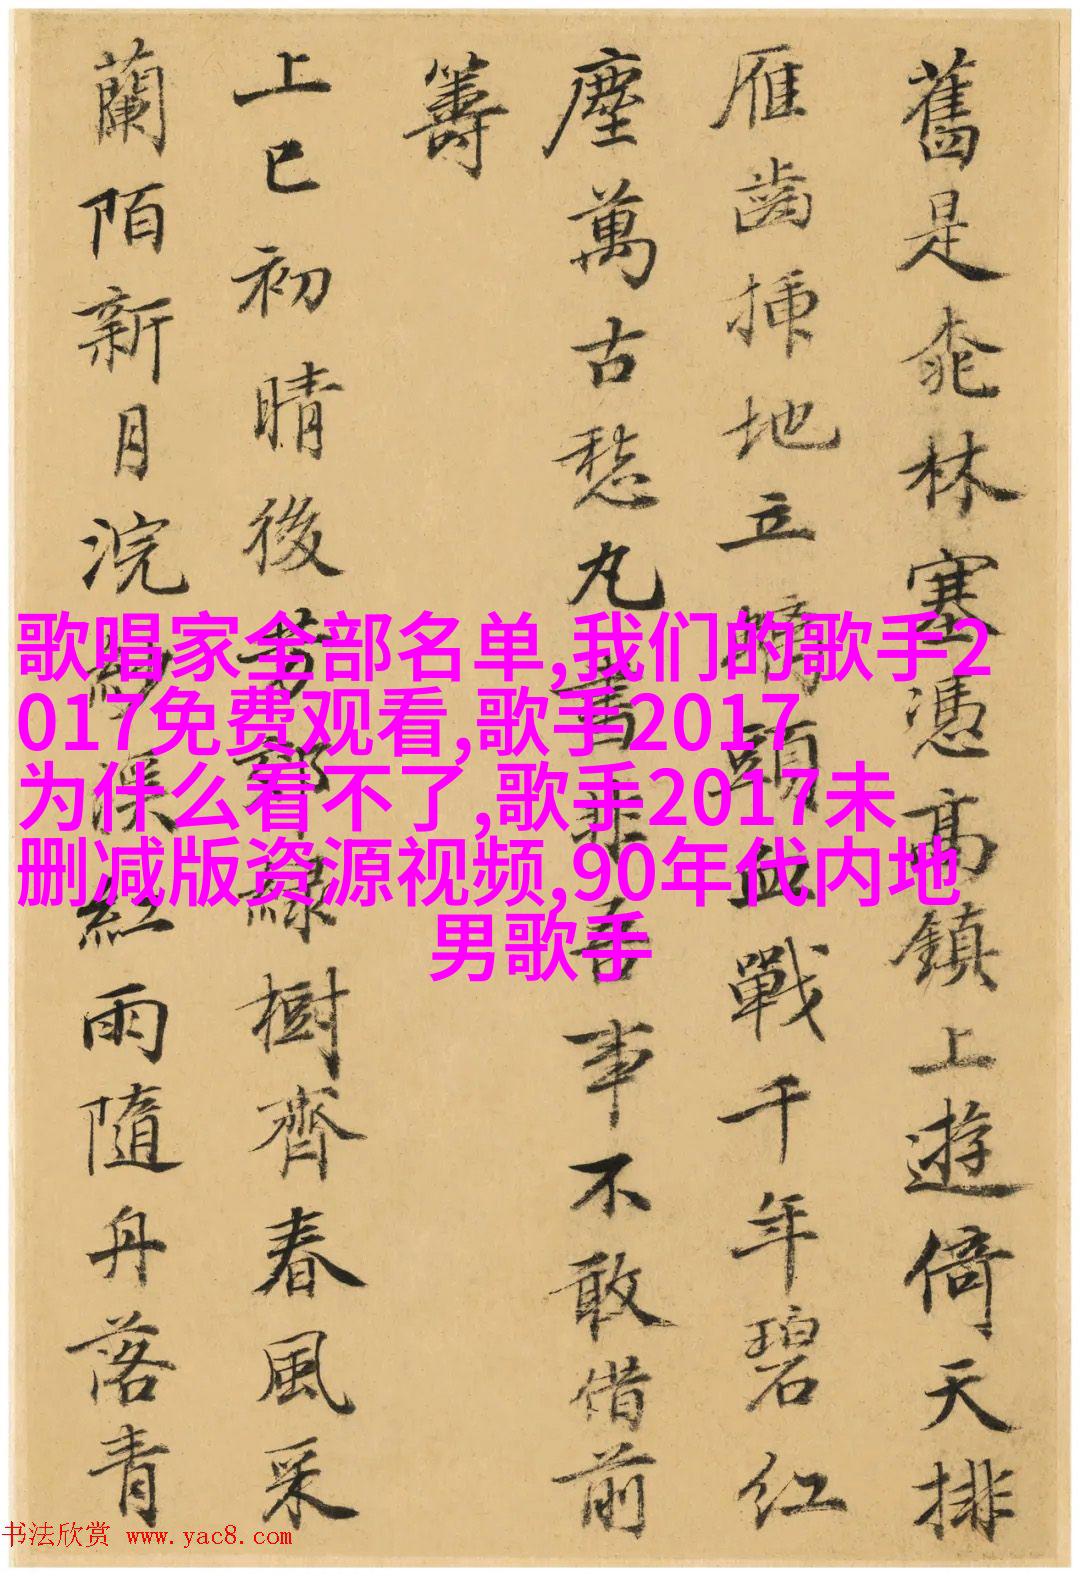 舊是桃林塞憑高鎮上遊倚天排
雁齒插地立螭頭血戰千年碧紅
塵萬古愁丸書非吾事不敢借前
籌
上巳初晴後芳郊綠樹齊春風采
蘭陌新月浣紗溪紅雨隨舟落青
歌唱家全部名单,我们的歌手2
017免费观看,歌手2017
为什么看不了,歌手2017未
删减版资源视频,90年代内地
男歌手
书法欣赏 www.yac8.com